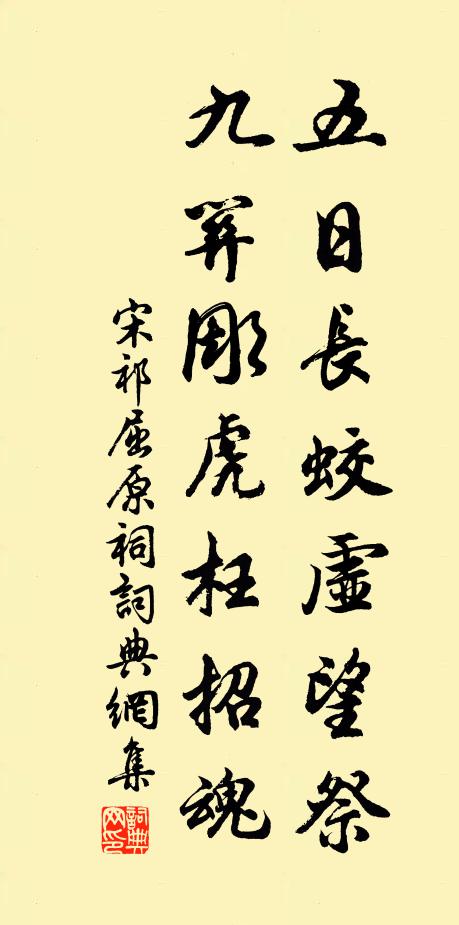 五日長蛟虛望祭
九關彫虎枉招魂
宋祁屈原祠詞典網集
詞典网印